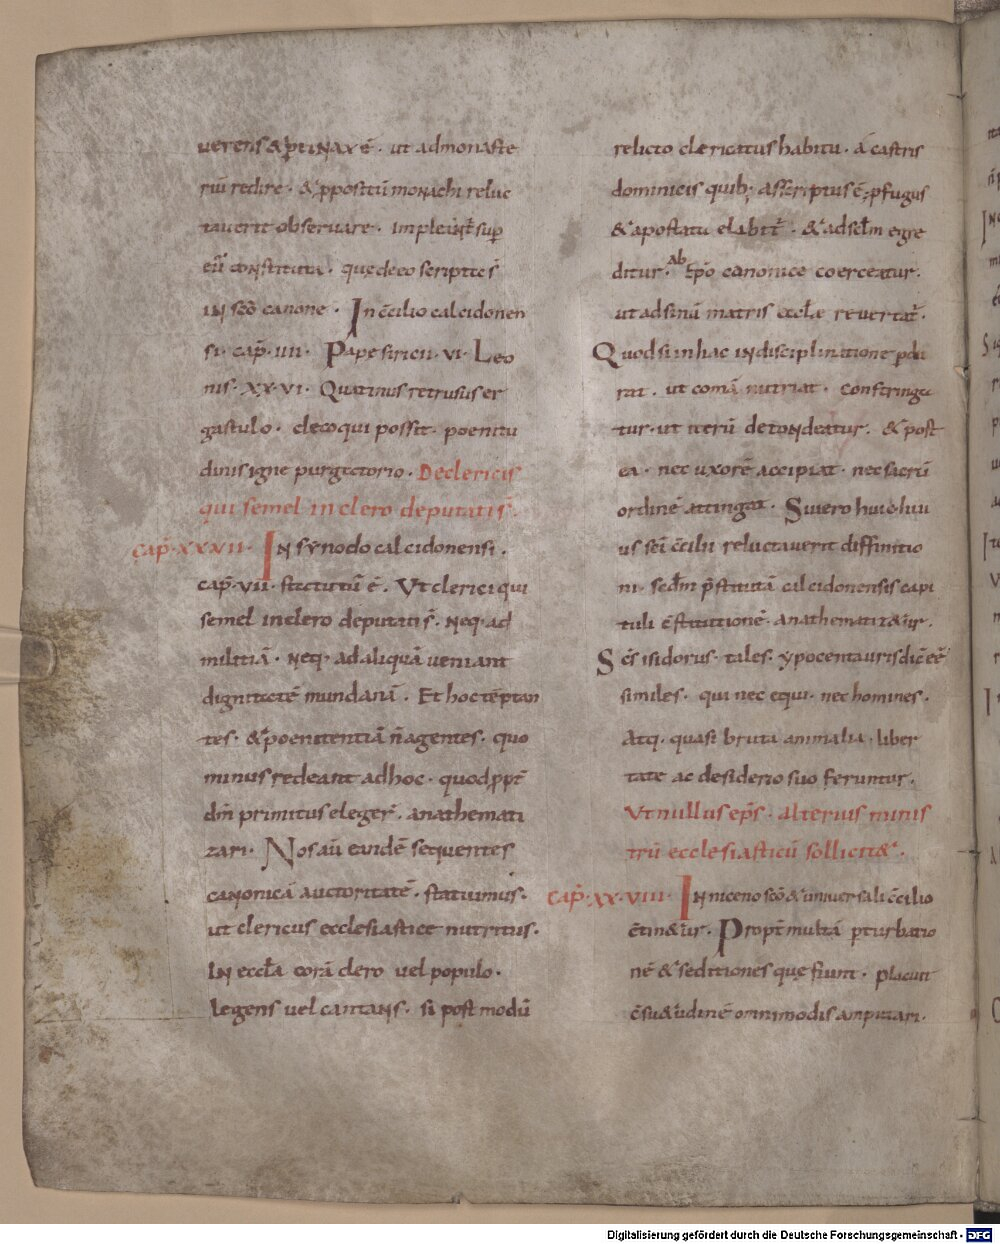 uerens & ptinax ē · ut ad monaste
riū redire · & ppositū monachi reluc
tauerit obseruare · impleat̄ sup
eū constituta · que de eo scripta s̄
in scō canone · In c̄cilio calcidonen
si · cap̄ · iiii · Pape siricii · vi · Leo
nis · xxvi · Quatinus retrusus er
gastulo · decoqui possit · poenitu
dinis igne purgatorio · De clericis
qui semel in clero deputati s̄ ·
cap̄ · xxvii · In synodo calcidonensi ·
cap̄ · vii · statutū ē · Ut clerici qui
semel in clero deputati s̄ · neq· ad
militiā · neq· ad aliquā ueniant
dignitatē mundanā · Et hoc tēptan
tes · & poenitentiā n̄ agentes · quo
minus redeant ad hoc · quod ppt̄
dm̄ primitus eleger̄ · anathemati
zari · Nos aū euidē sequentes
canonicā auctoritatē · statuimus ·
ut clericus ecclesiastice nutritus ·
in eccla corā clero uel populo ·
legens uel cantans · si post modū
relicto clericatus habitu · a castris
dominicis quib; asscriptus ē; pfugus
& apostata elabit̄ · & ad sclm egre
ditur · ab ep̄o canonice coerceatur ·
ut ad sinū matris eccle reuertat̄ ·
Quod si in hac indisciplinatione pdu
rat · ut comā nutriat · constringa
tur · ut iterū detondeatur · & post
ea · nec uxorē accipiat · nec sacrū
ordinē attingat · Si uero huic · luu
us sci c̄cilii reluctauerit diffinitio
ni · scdm p̄stitutā calcidonensis capi
tuli c̄stitutionē · anathematizet̄ur ·
Sc̄s isidorus · tales · ypocentauris dic̄ ee
similes · qui nec equi · nec homines ·
Atq· quasi bruta animalia · liber
tate ac desiderio suo feruntur ·
Ut nullus ep̄s · alterius minis
trū ecclesiasticū sollicit& ·
cap̄ · xxviii · In niceno scō & uniuersali c̄cilio
c̄tin&ur · Propt̄ multā pturbatio
nē & seditiones que fiunt · placuit
c̄su&udinē omnimodis amputari ·
Digitalisierung gefördert durch die Deutsche Forschungsgemeinschaft - DFG